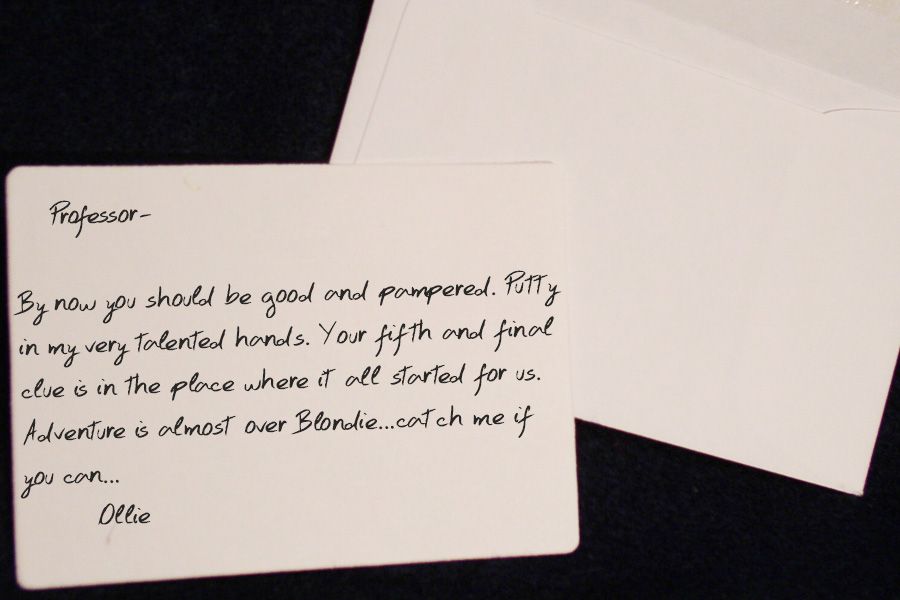 Professor-
By now you should be good and pampered. Putty
in my very talented hands. Your fifth and final
clue is in the place where it all started for us.
Adventure is almost over Blondie...catch me if
you can...
Ollie